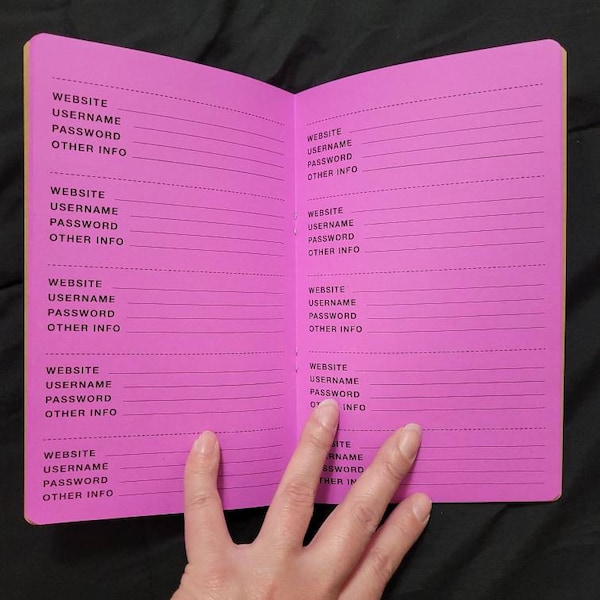 WEBSITE
USERNAME
PASSWORD
OTHER INFO
WEBSITE
USERNAME
PASSWORD
OTHER INFO
WEBSITE
USERNAME
PASSWORD
OTHER INFO
WEBSITE
USERNAME
PASSWORD
OTHER INFO
WEBSITE
USERNAME
PASSWORD
OTHER INFO
WEBSITE
USERNAME
PASSWORD
OTHER INFO
WEBSITE
USERNAME
PASSWORD
OTHER INFO
WEBSITE
USERNAME
PASSWORD
OTHER INFO
WEBSITE
USERNAME
PASSWORD
INFO